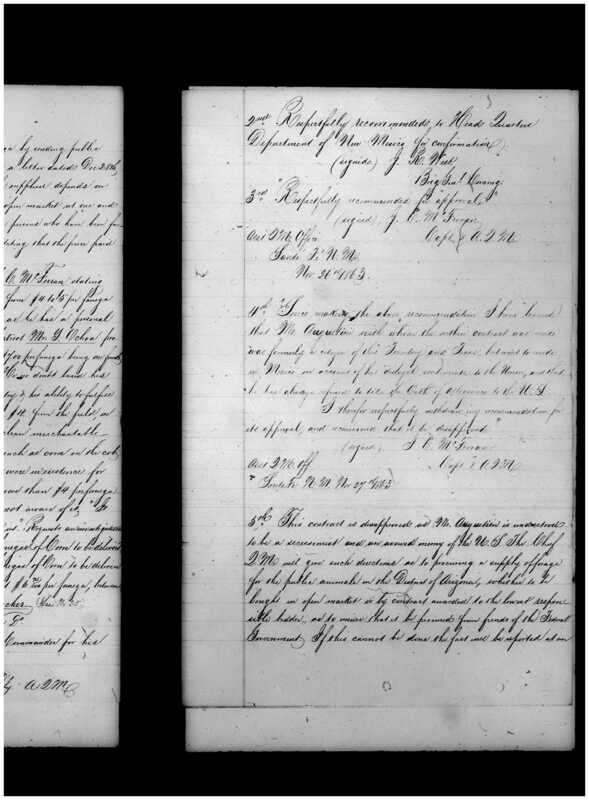 by ending public
a letter dated Dec 28th
supplied depends on
open market at one and
persons who have been
stating that the price paid
C. McFerran stating
from $4 to $5 per fanega
as he has a personal
Mr. Y. Ochoa
per fanega being
no doubt
his ability to fulfil
$4 from the field, or
clean merchantable
such as corn on the cob,
were in existence for
than $4 per fanega
not aware of it,
of Corn to be delivered
of Corn to be deliver
per fanega, between
Commander for his
A.Q.M.
2nd Respectfully recommended to Head Quarters
Department of New Mexico for confirmation
(signed) J. R. West
Brig. Genl. Comdg.
3rd "Respectfully recommended for approval"
(signed) J. C. McFerran
Asst Q.M. Office Capt & A.Q.M.
Santa Fe N.M.
Nov 26th 1863.
4th "Since making the above recommendation I have learned
that Mr. Augustin with whom the within contract was made
was formerly a citizen of this Territory and Texas, but went to reside
in Mexico on account of his disloyal sentiments to the Union, and that
he has always refused to take the Oath of allegiance to the U.S.
I therefore respectfully withdraw my recommendation for
its approval, and recommend that it be disapproved"
(signed) J. C. McFerran
Asst Q.M. Off Capt & A.Q.M.
Santa Fe N.M. Nov 27th 1863
5th This contract is disapproved as Mr. Augustin is understood
to be a secessionist and an avowed enemy of the U.S. The Chief
Q.M. will give such directions as to procuring a supply of forage
for the public animals in the District of Arizona, whether it be
bought in open market or by contract awarded to the lowest respon
sible bidder, as to insure that it be procured from friends of the Federal
Government. If this cannot be done the fact will be reported at on